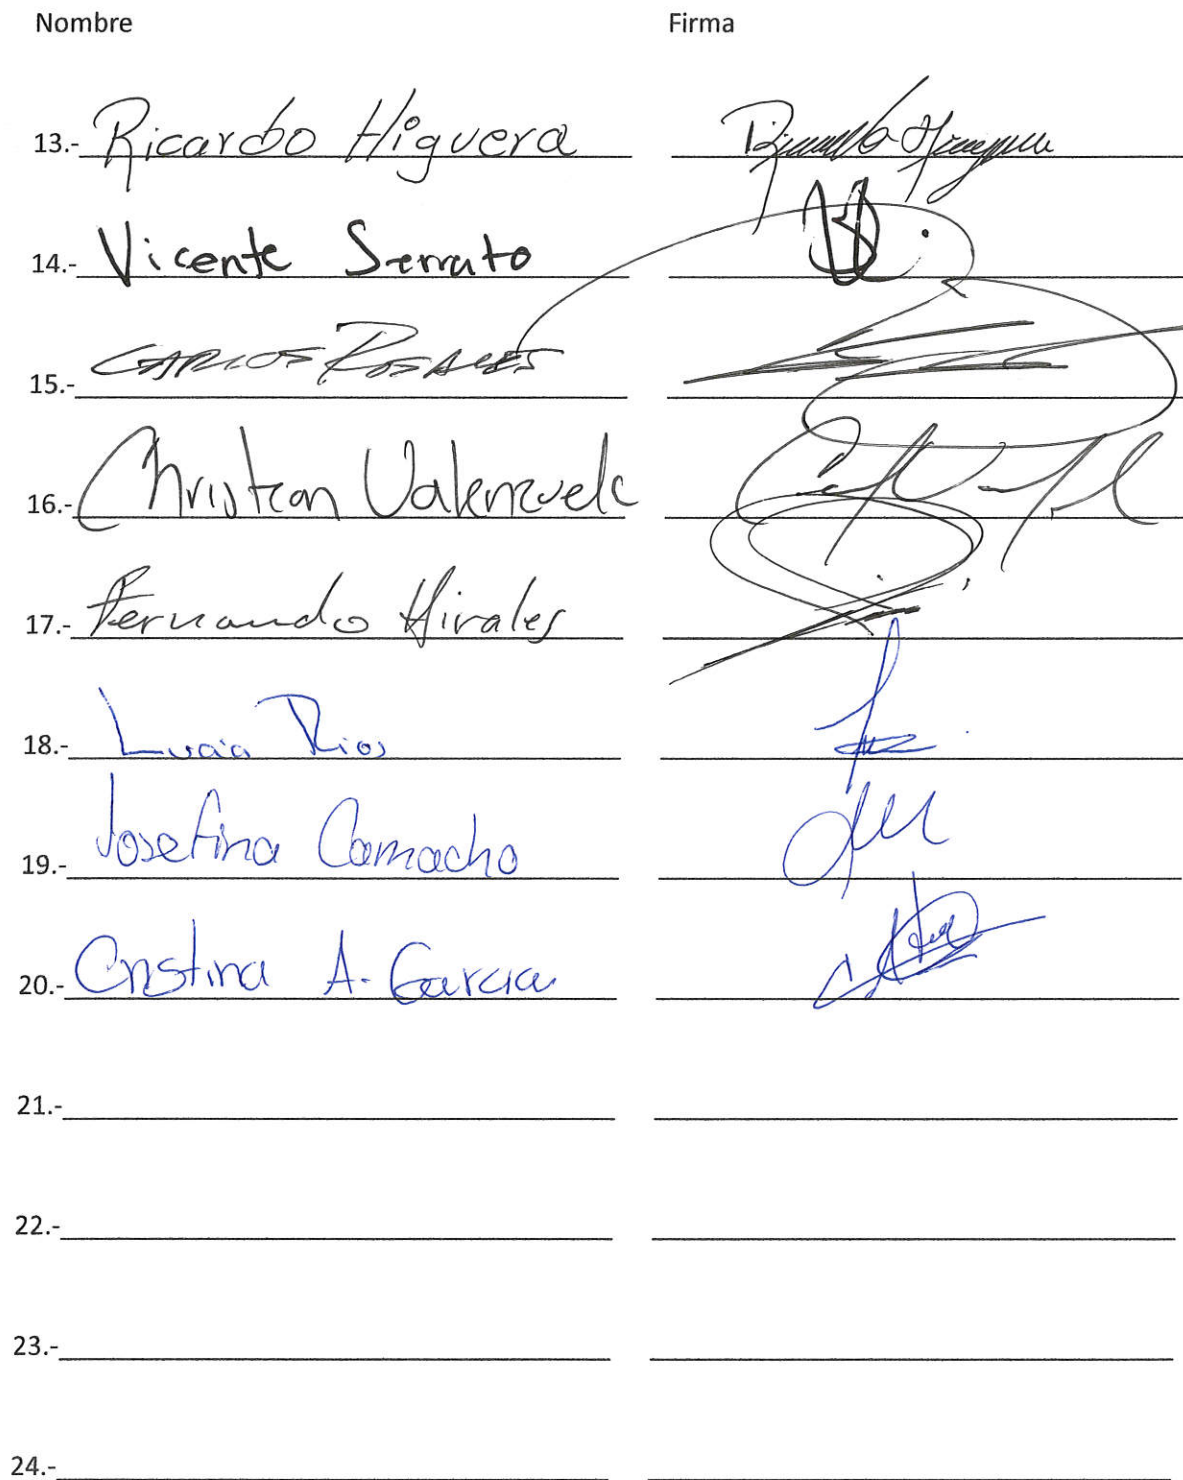 Nombre Firma
13.- Ricardo Higuera
14.- Vicente Serrato
15.- CARLOS ROSALES
16.- Christian Valenzuela
17.- Fernando Hirales
18.- Lucia Rios
19.- Josefina Camacho
20.- Cristina A. Garcia
21.-
22.-
23.-
24.-